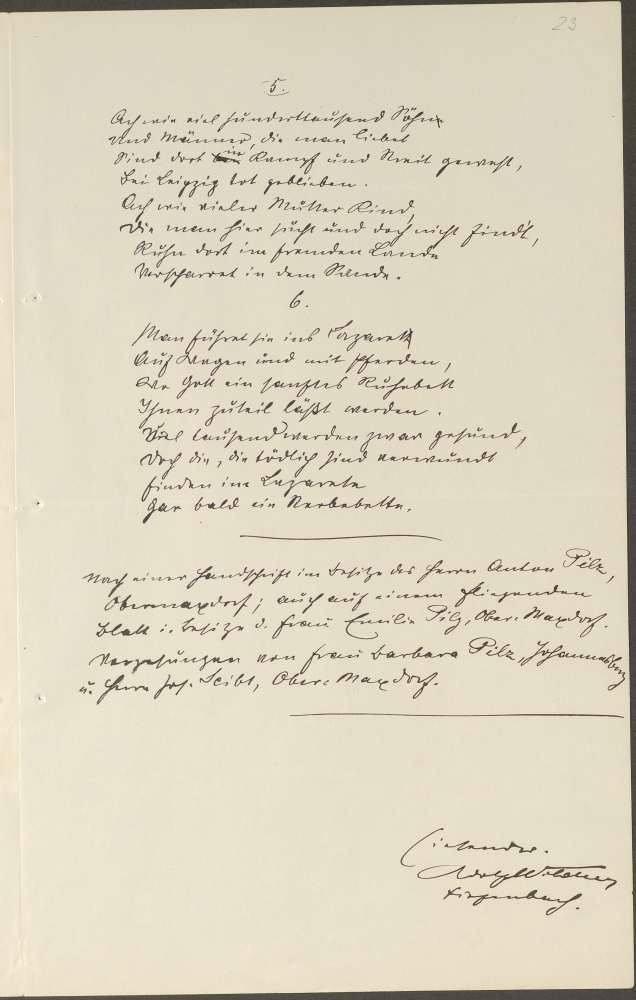 23
5.
Ach wie viel hunderttausend Söhne
Und Männer, die man liebet
Sind dort in Kampf und Streit gewest,
Bei Leipzig tot geblieben.
Ach wie vieler Mutter Kind,
Die man hier sucht und doch nicht find't,
Ruhn dort im fremden Lande
Verscharret in dem Sande.
6.
Man führet sie ins Lazarett
Auf Wagen und mit Pferden,
Wo Gott ein sanftes Ruhebett
Ihnen zuteil läßt werden.
Viel tausend werden zwar gesund,
Doch die, die tödlich sind verwundt
Finden im Lazarete
Gar bald ein Sterbebette.
Nach einer Handschrift im Besitze des Herrn Anton Pilz,
Obermaxdorf; auch auf einem fliegenden
Blatt i. Besitze d. Frau Emilie Pilz, Ober-Maxdorf.
Vorgesungen von Frau Barbara Pilz, Johannesberg
u. Herrn Jos. Seibt, Ober-Maxdorf.
Einsender.
Adolf